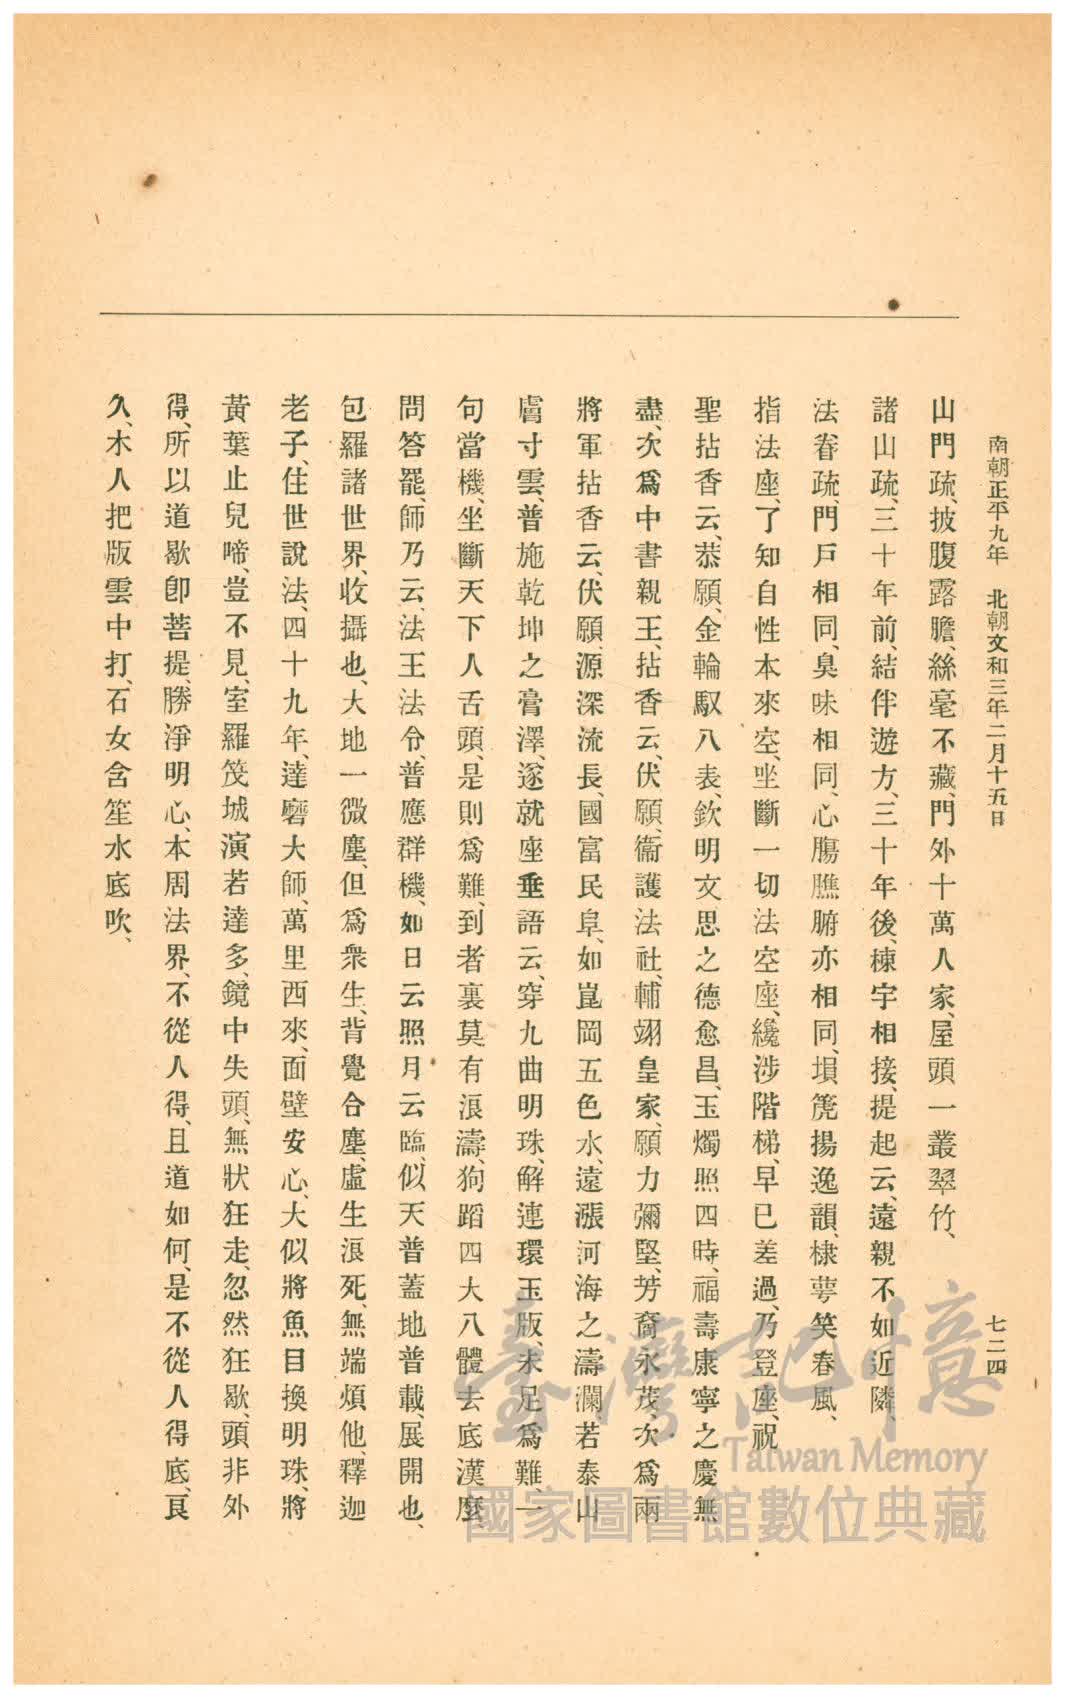 南朝正平九年　北朝文和三年二月十五日
七二四
山門疏、披腹露膽、絲毫不藏、門外十萬人家、屋頭一叢翠竹、
諸山疏、三十年前、結伴遊方、三十年後、棟宇相接、提起云、遠親不如近隣、
法眷疏、門戶相同、臭味相同、心膓膲腑亦相同、塤箎揚逸韻、棣萼笑春風、
指法座、了知自性本來空、坐斷一切法空座、纔涉階梯、早已差過、乃登座、祝
聖拈香云、恭願、金輪馭八表、欽明文思之德愈昌、玉燭照四時、福壽康寧之慶無
盡、次爲中書親王、拈香云、伏願、衞護法社、輔翊皇家、願力彌堅、芳裔永茂、次爲兩
將軍拈香云、伏願、源深流長、國富民阜、如崑岡五色水、遠漲河海之濤瀾、若泰山
膚寸雲、普施乾坤之膏澤、遂就座垂語云、穿九曲明珠、解連環玉版、未足爲難、一
句當機、坐斷天下人舌頭、是則爲難、到者裏莫有浪濤、狗蹈四大八體去底漢麼、
問答罷、師乃云、法王法令、普應群機、如日云照月云臨、似天普蓋地普載、展開也、
包羅諸世界、收攝也、大地一微塵、但爲衆生、背覺合塵、虛生浪死、無端煩他、釋迦
老子、住世說法、四十九年、達磨大師、萬里西來、面壁安心、大似將魚目換明珠、將
黃葉止兒啼、豈不見、室羅筏城演若達多、鏡中失頭、無狀狂走、忽然狂歇、頭非外
得、所以道歇卽菩提、勝淨明心、本周法界、不從人得、且道如何、是不從人得底、良
久、木人把版雲中打、石女含笙水底吹、
臺灣記憶
Taiwan Memory
國家圖書館數位典藏